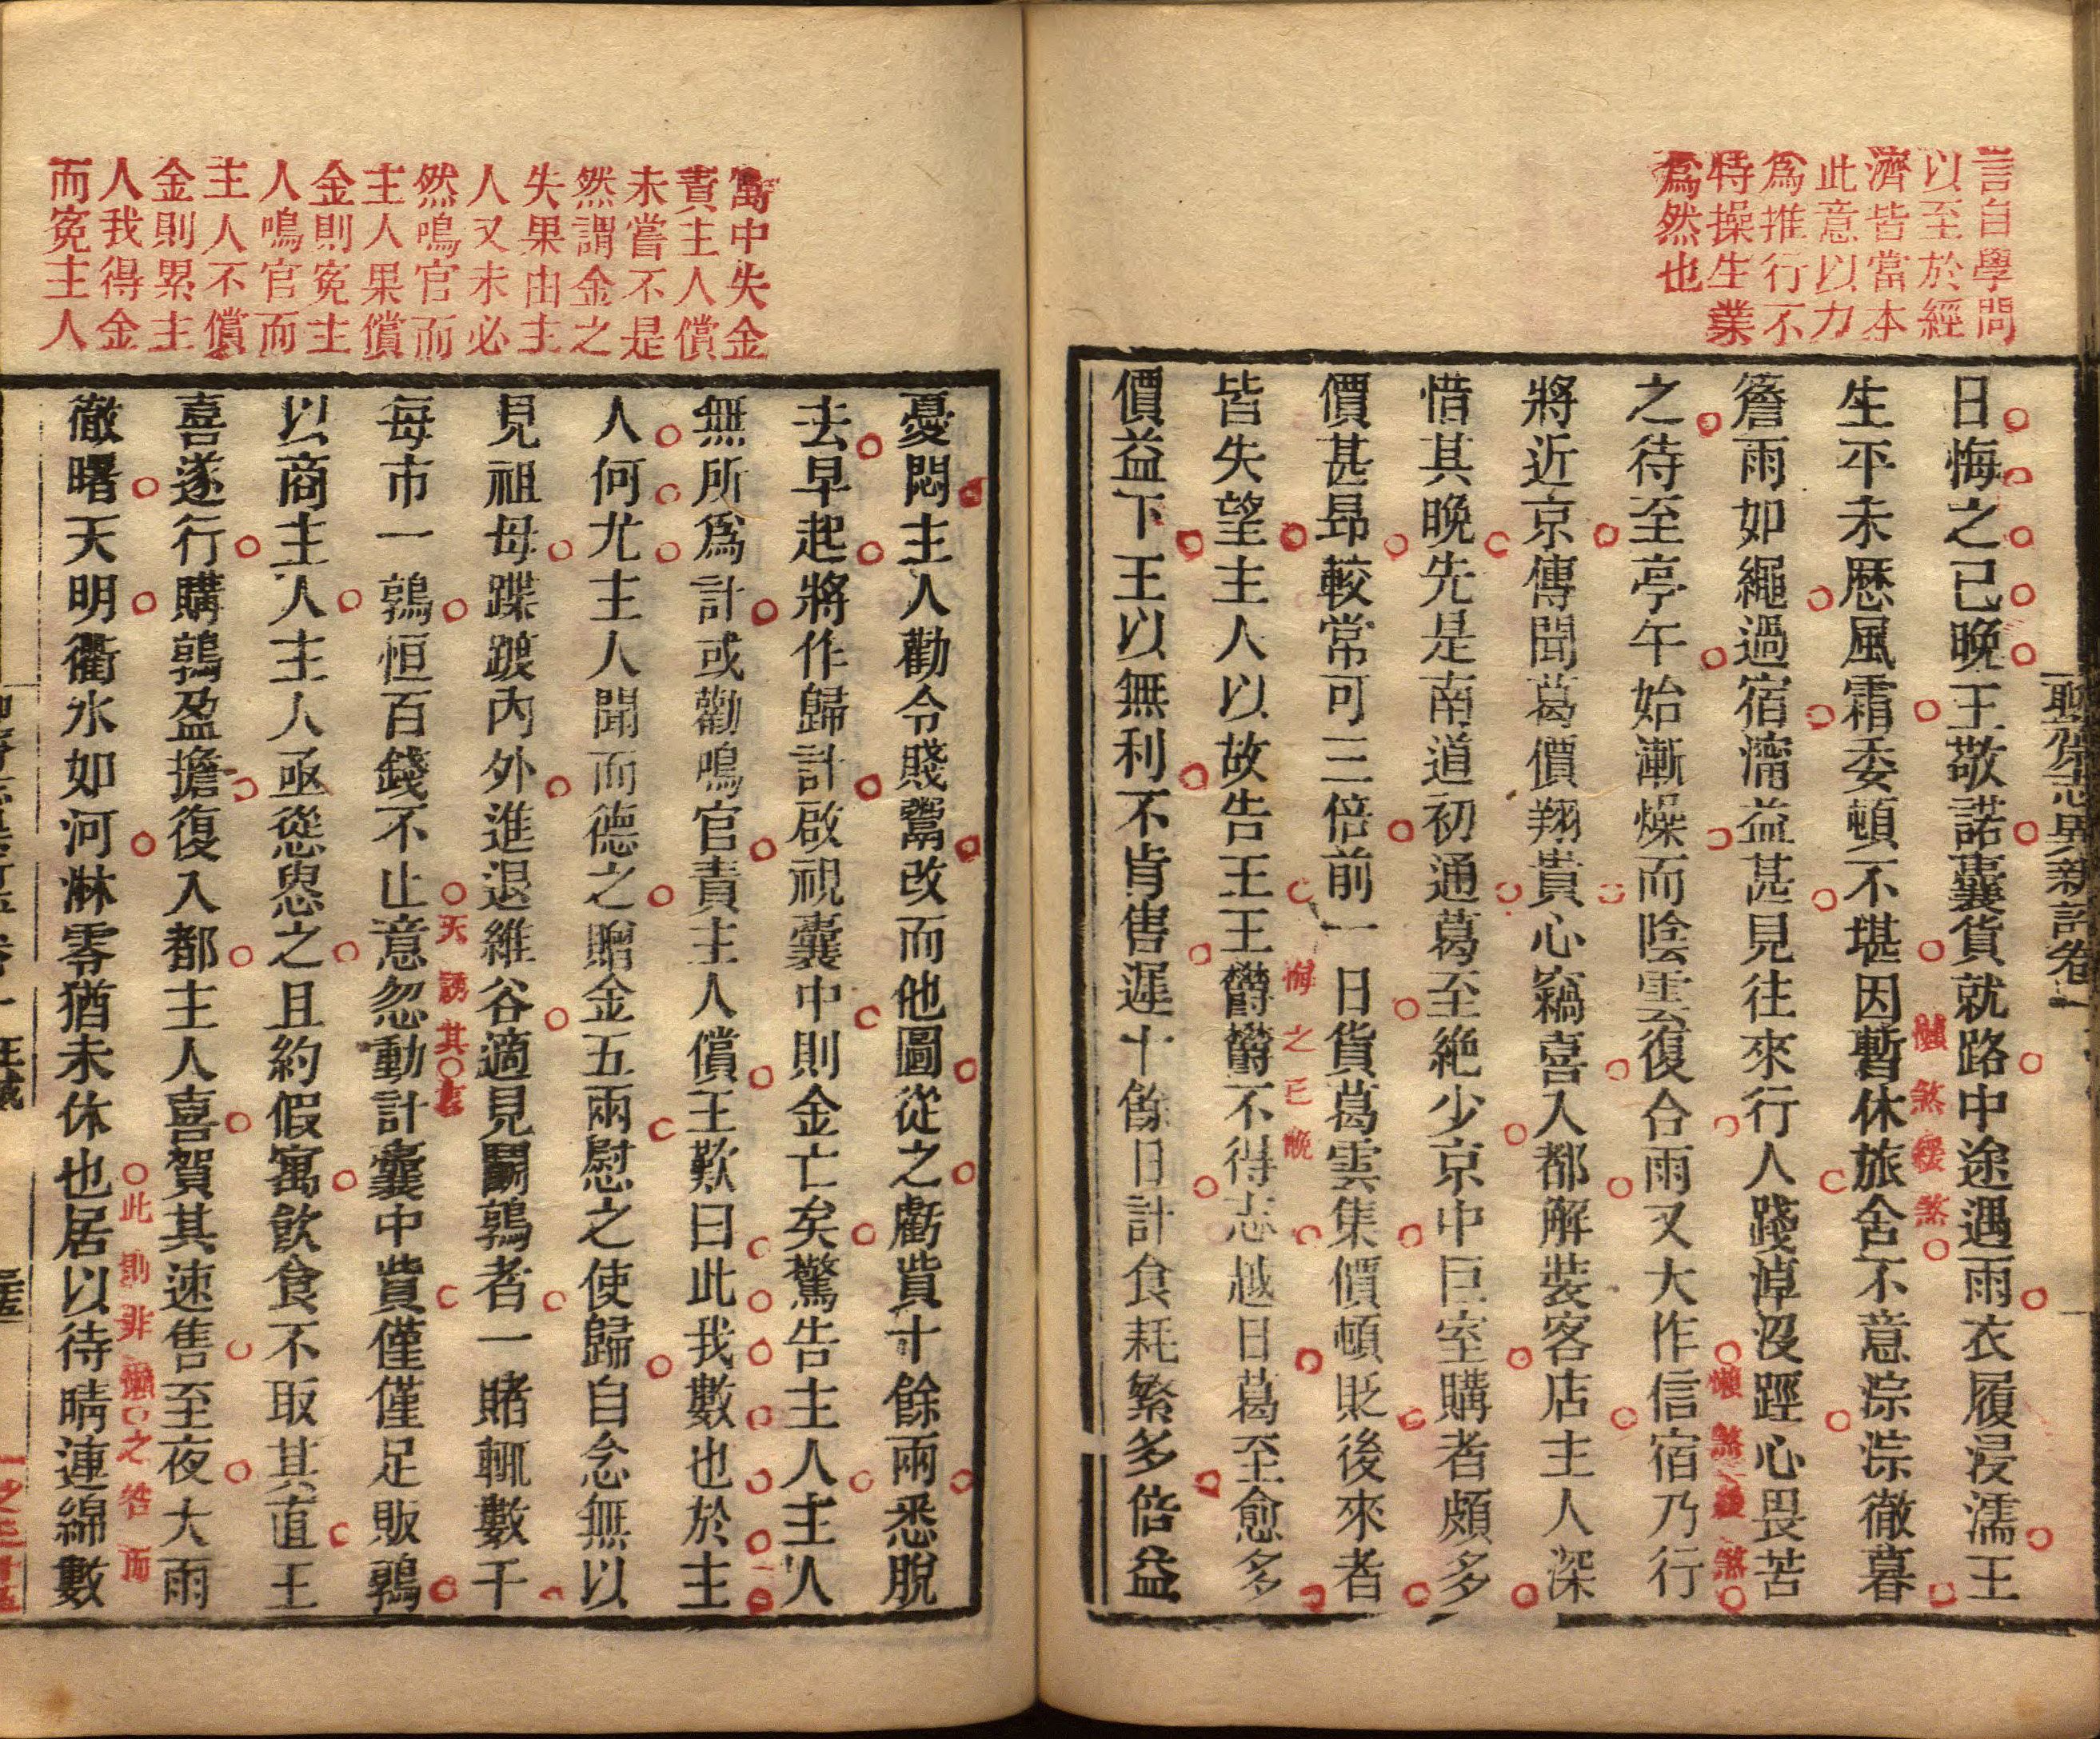 言自學問
以至於經
濟皆當本
此意以力
為推行不
特操生業
為然也
聊齋志異新評卷一
日悔之已晚王敬諾囊貨就路中途遇雨衣履浸濡王
懶煞緩煞
生平未歷風霜委頓不堪因暫休旅舍不意淙淙徹暮
簷雨如繩過宿濘益甚見往來行人踐淖沒脛心畏苦
懶煞緩煞
之待至亭午始漸燥而陰雲復合雨又大作信宿乃行
將近京傳聞葛價翔貴心竊喜入都解裝客店主人深
惜其晚先是南道初通葛至絶少京中巨室購者頗多
價甚昻較常可三倍前一日貨葛雲集價頓貶後來者
悔之已晚
皆失望主人以故告王王鬱鬱不得志越日葛至愈多
價益下王以無利不肯售遲十餘日計食耗繁多倍益
寓中失金
責主人償
未嘗不是
然謂金之
失果由主
人又未必
然鳴官而
主人果償
金則寃主
人鳴官而
主人不償
金則累主
人我得金
而寃主人
憂悶主人勸令賤鬻改而他圖從之虧貲十餘兩悉脫
去早起將作歸計啟視囊中則金亡矣驚告主人主人
無所爲計或勸鳴官責主人償王歎曰此我數也於主
人何尤主人聞而德之贈金五兩慰之使歸自念無以
見祖母蹀踱內外進退維谷適見鬭鶉者一賭輒數千
每市一鶉恒百錢不止意忽動計囊中貲僅僅足販鶉
天誘其衷
以商主人主人亟慫恿之且約假寓飲食不取其直王
喜遂行購鶉盈擔復入都主人喜賀其速售至夜大雨
徹曙天明衢水如河淋零猶未休也居以待晴連綿數
此則非懶之咎而